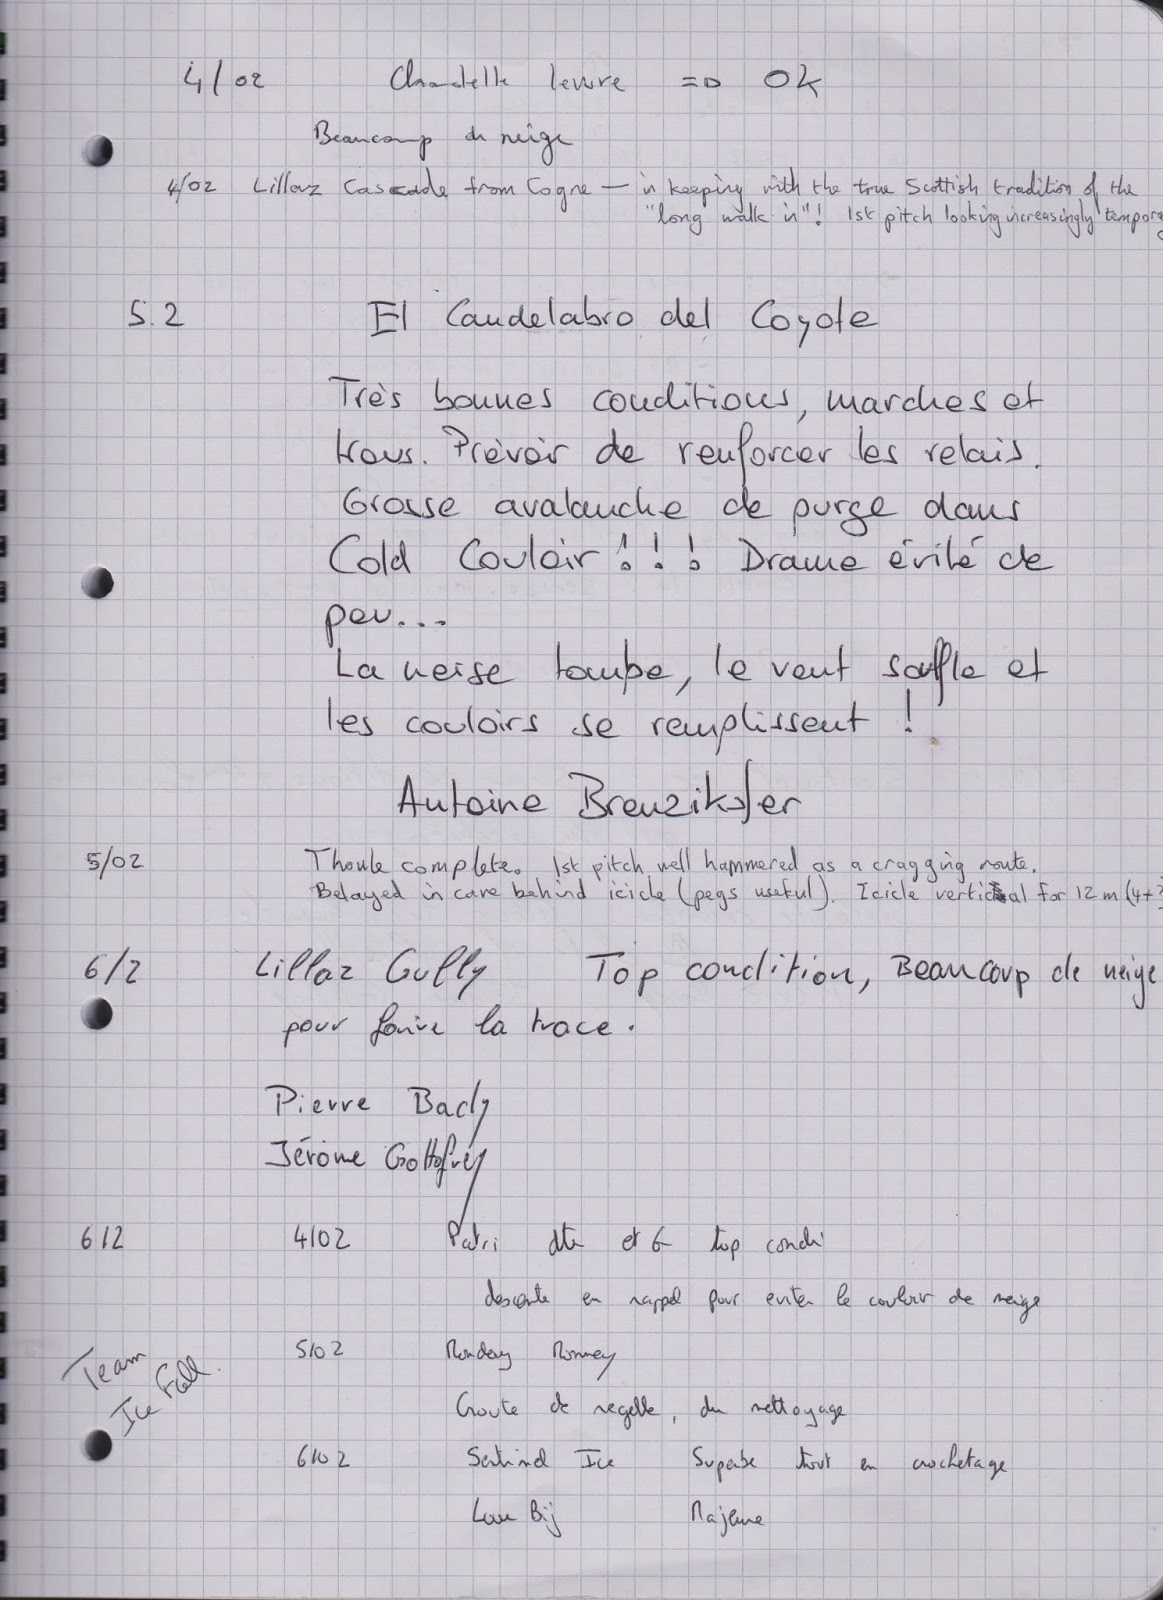 4/02 Chandelle levure => OK
Beaucoup de neige
4/02 Lillaz Cascade from Cogne — in keeping with the true Scottish tradition of the
"long walk in"! 1st pitch looking increasingly
5.2 El Candelabro del Coyote
Très bonnes conditions, marches et
trous. Prévoir de renforcer les relais.
Grosse avalanche de purge dans
Cold Couloir!!! Drame évité de
peu...
La neige tombe, le vent souffle et
les couloirs se remplissent!
Antoine Brenzikofer
5/02 Thoule complete. 1st pitch well hammered as a cragging route.
Belayed in cave behind icicle (pegs useful). Icicle vertical for 12m (4+?
6/2 Lillaz Gully Top condition, Beaucoup de neige
pour faire la trace.
Pierre Bady
Jérôme Gottofrey
6/2 4/02 Patri dte et G top condi
descente en rappel pour eviter le couloir de neige
5/02 Monday Money
Croute de regelle, du nettoyage
Team
Ice Fall.
6/02 Sentinel Ice Superbe tout en crochetage
Lau Bij Majeure